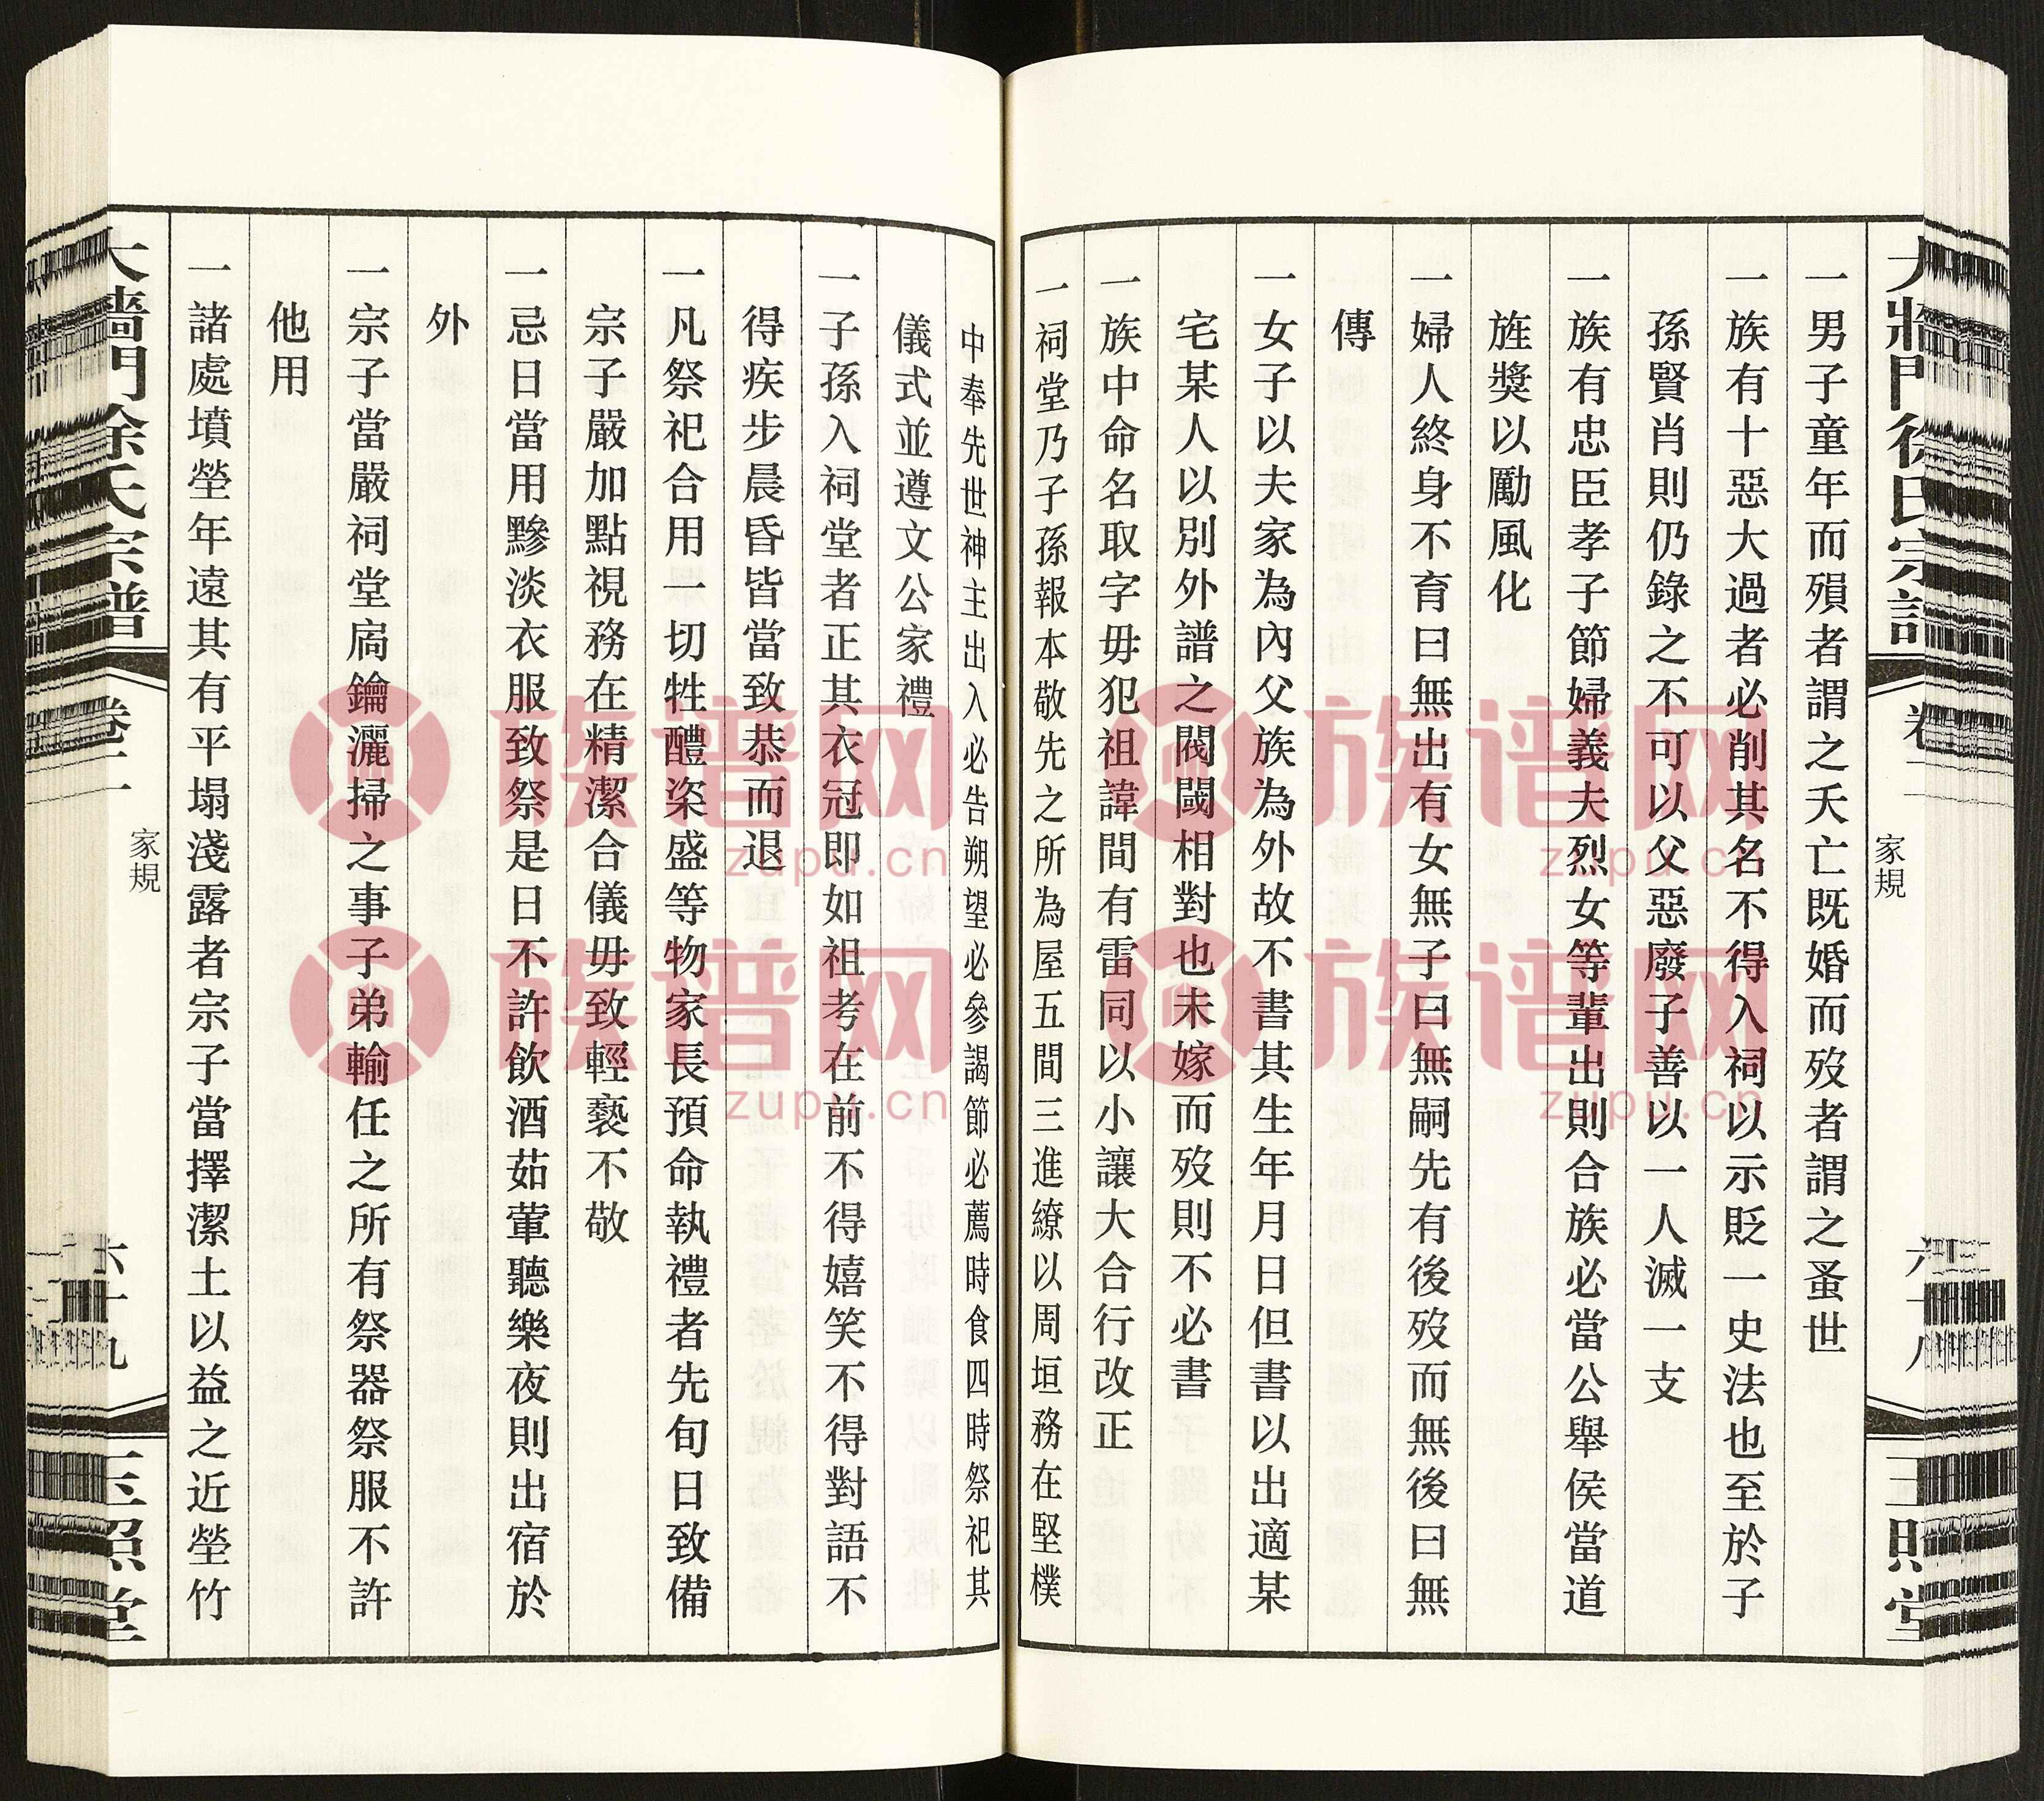 一男子童年而殞者謂之夭亡既婚而歿者謂之蚤世
一族有十惡大過者必削其名不得入祠以示貶一史法也至於子
孫賢肖則仍錄之不可以父惡廢子善以一人滅一支
一族有忠臣孝子節婦義夫烈女等輩出則合族必當公舉侯當道
旌獎以勵風化
一婦人終身不育曰無出有女無子曰無嗣先有後歿而無後曰無
傳
一女子以夫家為內父族為外故不書其生年月日但書以出適某
宅某人以別外譜之閥閾相對也未嫁而歿則不必書
一族中命名取字毋犯祖諱間有雷同以小讓大合行改正
一祠堂乃子孫報本敬先之所為屋五間三進繚以周垣務在堅樸
中奉先世神主出入必告朔望必參謁節必薦時食四時祭祀其
儀式並遵文公家禮
一子孫入祠堂者正其衣冠即如祖考在前不得嬉笑不得對語不
得疾步晨昏皆當致恭而退
一凡祭祀合用一切牲醴粢盛等物家長預命執禮者先旬日致備
宗子嚴加點視務在精潔合儀毋致輕褻不敬
一忌日當用黲淡衣服致祭是日不許飲酒茹葷聽樂夜則出宿於
外
一宗子當嚴祠堂扃鑰灑掃之事子弟輸任之所有祭器祭服不許
他用
一諸處墳塋年遠其有平塌淺露者宗子當擇潔土以益之近塋竹
大牆門徐氏宗譜
卷二
家規
六十八
玉照堂
大牆門徐氏宗譜
卷二
家規
六十九
玉照堂
族谱网
zupu.cn
族谱网
zupu.cn
族谱网
zupu.cn
族谱网
zupu.cn